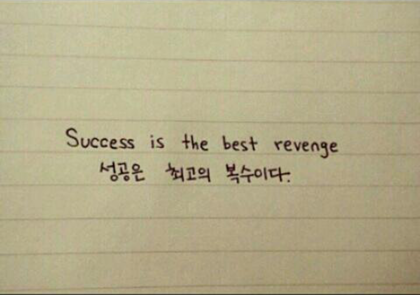 Success is the best revenge
성공은 최고의 복수이다.